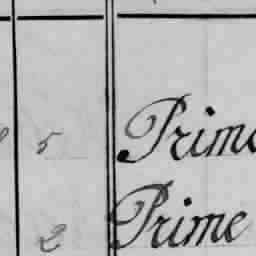 5 Prime
2 Prime